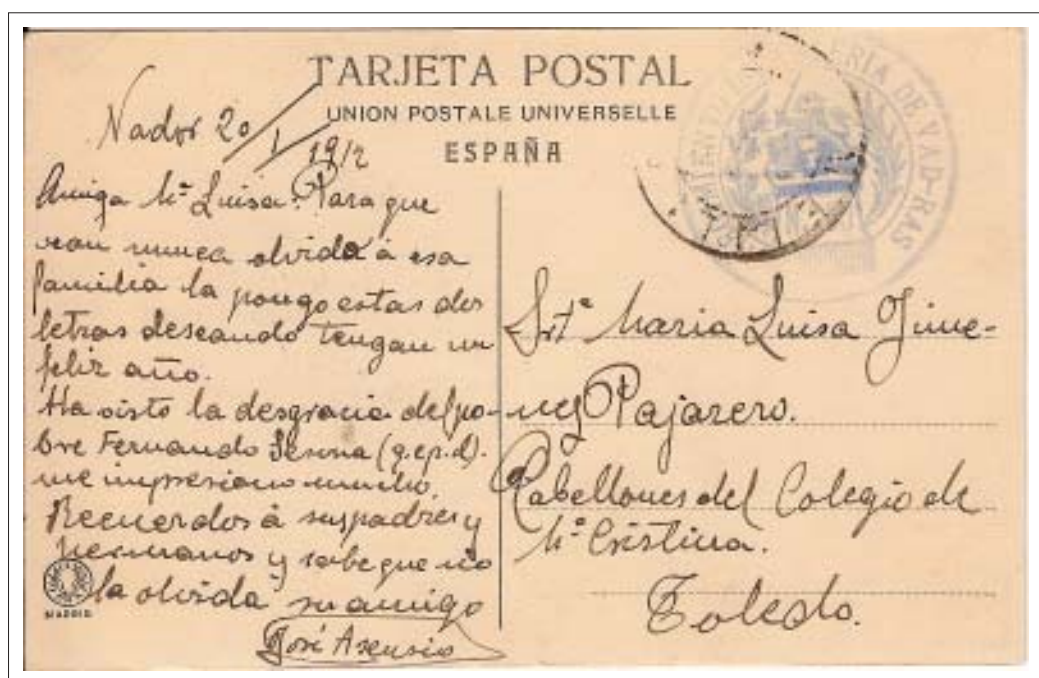 TARJETA POSTAL
UNION POSTALE UNIVERSELLE
ESPAÑA
Nador 20 / 1 / 1912
Amiga Mª Luisa: Para que
vean nunca olvido á esa
familia la pongo estas dos
letras deseando tengan un
feliz año.
Ha visto la desgracia del po-
bre Fernando (q.e.p.d.).
me impresiono mucho.
Recuerdos á sus padres y
hermanos y sabe que no
la olvida su amigo
José Asensio
MADRID
Srtª Maria Luisa Jime-
nez Pajarero.
Pabellones del Colegio de
Mª Cristina.
Toledo.
ERIA DE VAD-RAS